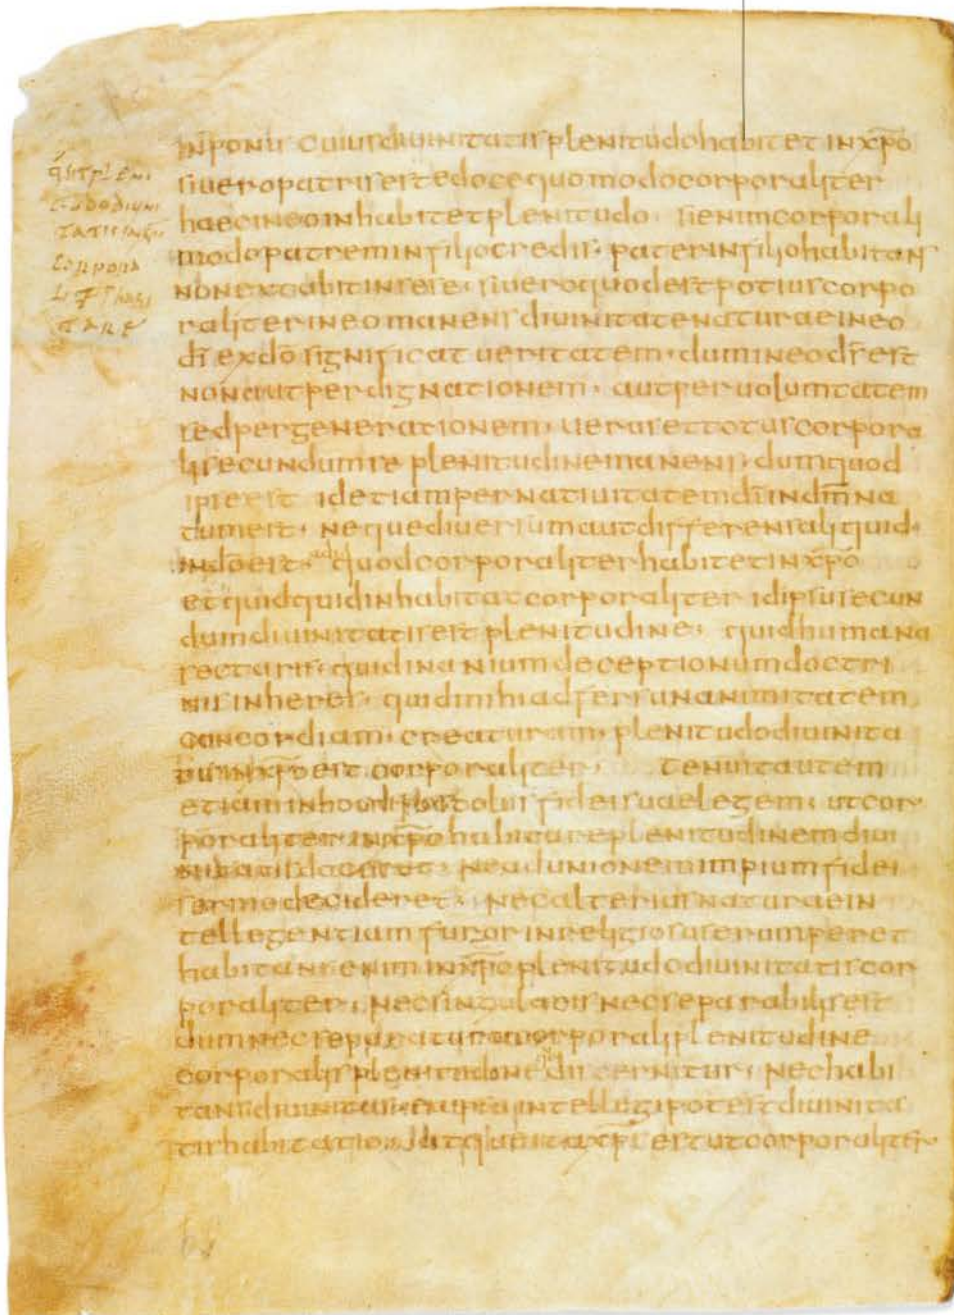 q̄ sit pleni
tudo diuini
tatis in xp̄o
corpora
liter habi
tare
inponis cuius diuinitatis plenitudo habitet in xp̄o
si uero patris est edoce quomodo corporaliter
haec in eo inhabitet plenitudo · si enim corporali
modo patrem in filio credis · pater in filio habitans
non extabit in se se · si uero quod est potius corpo
raliter in eo manens diuinitate naturae in eo
dī ex dō significat ueritatem · dum in eo dr̄ est
non aut per dignationem · aut per uolumtatem
sed per generationem · uerus et totus corpora
li secundum se plenitudine manens · dum quod
ipse est id etiam per natiuitatem dī in dm̄ na
tum est · neque diuersum aut differens aliquid ·
in dō est · quod corporaliter habitet in xp̄o
et quidquid inhabitat corporaliter id ipsu secun
dum diuinitatis est plenitudine · quid humana
sectaris · quid inanium deceptionum doctri
nis inheres · quid mihi adfers unanimitatem
concordiam · creaturam · plenitudo diuinita
tis in xp̄o est corporaliter · tenuit autem
etiam in hoc apostolus fidei suae legem · ut cor
poraliter in xp̄o habitare plenitudinem diui
nitatis doceret · ne ad unionem impium fidei
sermo decideret · nec alterius naturae in
tellegentiam furor inreligiosus erumperet
habitans enim in xp̄o plenitudo diuinitatis cor
poraliter · nec singularis nec separabilis est
dum nec corporali plenitudine
corporalis plenitudine discernitur · nec habi
tans diuinitas intellegi potest diuinita
tis habitatio · atque ita xp̄s est ut corporaliter